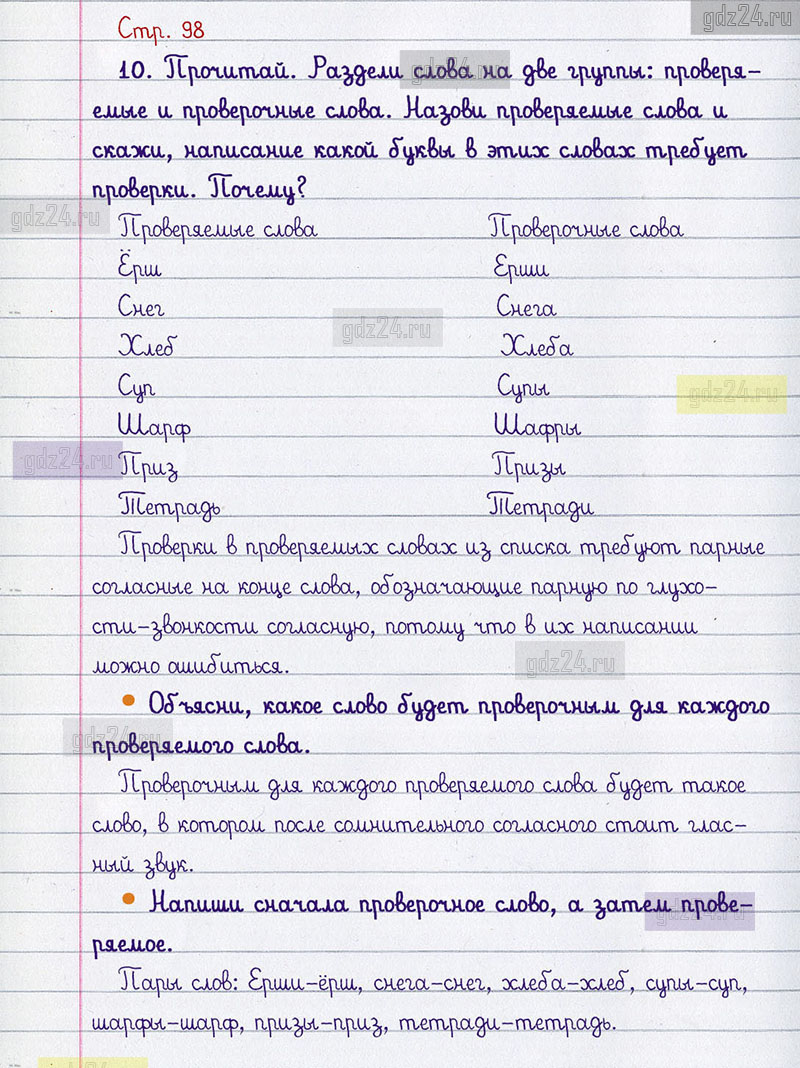 gdz24.ru
Стр. 98
10. Прочитай. Раздели слова на две группы: проверя-
gdz24.ru
емые и проверочные слова. Назови проверяемые слова и
скажи, написание какой буквы в этих словах требует
проверки. Почему?
gdz24.ru
Проверяемые слова Проверочные слова
Ёрш Ерши
Снег Снега
gdz24.ru
Хлеб Хлеба
Суп Супы
gdz24.ru
Шарф Шафры
gdz24.ru
Приз Призы
Тетрадь Тетради
Проверки в проверяемых словах из списка требуют парные
согласные на конце слова, обозначающие парную по глухо-
сти-звонкости согласную, потому что в их написании
можно ошибиться.
gdz24.ru
• Объясни, какое слово будет проверочным для каждого
gdz24.ru
проверяемого слова.
Проверочным для каждого проверяемого слова будет такое
слово, в котором после сомнительного согласного стоит глас-
ный звук.
• Напиши сначала проверочное слово, а затем прове-
gdz24.ru
ряемое.
Пары слов: Ерши-ёрш, снега-снег, хлеба-хлеб, супы-суп,
шарфы-шарф, призы-приз, тетради-тетрадь.